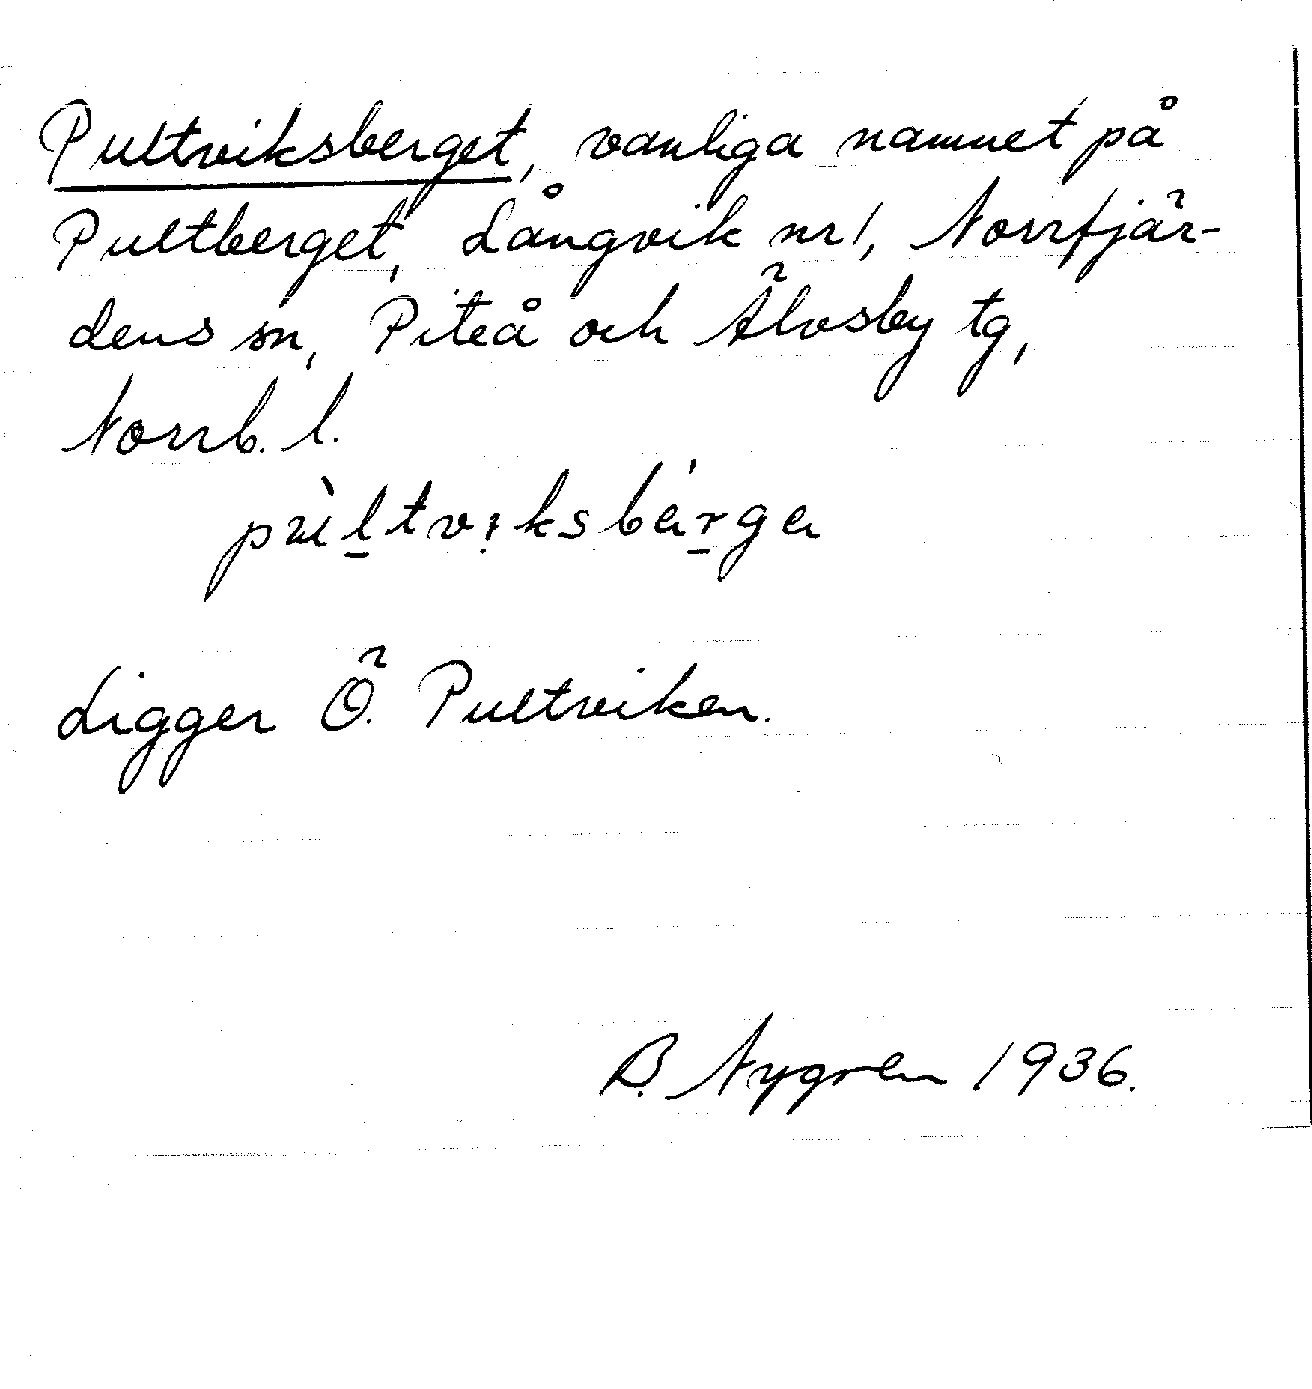 Pultviksberget, vanliga namnet på
Pultberget, Långvik nr 1, Norrfjär-
dens sn, Piteå och Älvsby tg,
Norrb. l.
pùltviksbárga
Ligger Ö. Pultviken.
B. Nygren 1936.